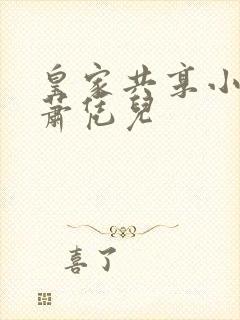 皇家共享小
萧恁儿
喜了